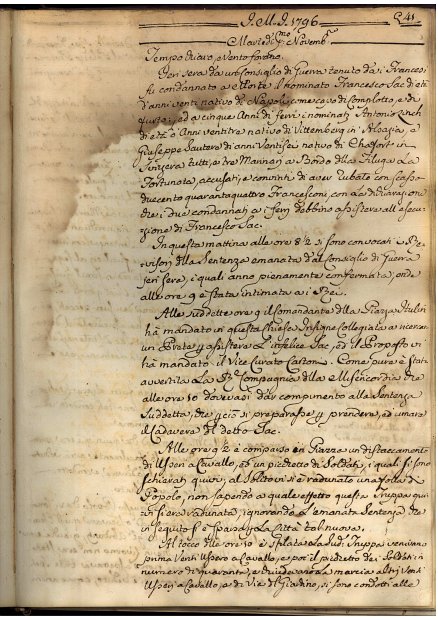 J. M. J. 1796.
41.
Martedì Pmo Novembre
Tempo chiaro, e Vento fortino.
Jeri sera da un Consiglio di Guerra tenuto dai Francesi
fù condannato a Morte il nominato Francesco Sac di età
d'anni venti nativo di Napoli, come capo di Complotto, e di
furto; ed a cinque Anni di ferri i nominati Antonio
di età d'Anni ventitre nativo di Vittemberg in Alsazia, e
Giuseppe Sautere di anni Ventisei nativo di
Svizzera tutti, e tre Marinari a Bordo della Filuga La
Fortunata, accusati, e convinti di aver rubato con
duecento quaranta quattro Francesconi, con La dichiarazione
che i due condannati a' ferri debbino assistere all'esecu-
zione di Francesco Sac.
In questa mattina alle ore 8½ si sono convocati i Re-
visori della Sentenza emanata dal Consiglio di Guerra
jeri sera, i quali anno pienamente confermata, onde
alle ore 9 è stata intimata a i Rei.
Alle suddette ore 9 il Comandante della Piazza
hà mandato in questa Chiesa Insigne Collegiata a ricercare
un Prete p. assistere L'infelice Sac, ed il Proposto vi
hà mandato il Vice Curato Cartoni. Come pure è stata
avvertita La Compagnia della Misericordia che
alle ore 10 dovevasi dar compimento alla Sentenza
suddetta, che p. ciò si preparasse p. prendere, ed umare
il Cadavere del detto Sac.
Alle ore 9½ è comparso in Piazza un distaccamento
di Usseri a Cavallo, ed un picchetto di Soldati, i quali si sono
schierati quivi, al Solito vi si è radunato una folla di
Popolo, non sapendo a quale effetto questa Truppa qui-
vi si era radunata, ignorando La emanata Sentenza che
in seguito si è sparsa p. La Città tal nuova.
Al tocco delle ore 10 è sfilata La sud.a Truppa venivano
prima Venti Usseri a Cavallo, e poi il picchetto dei Soldati in
numero di quaranta, e chiudevano La marcia altri Venti
Usseri a Cavallo, e di Via del Giardino, si sono condotti alle